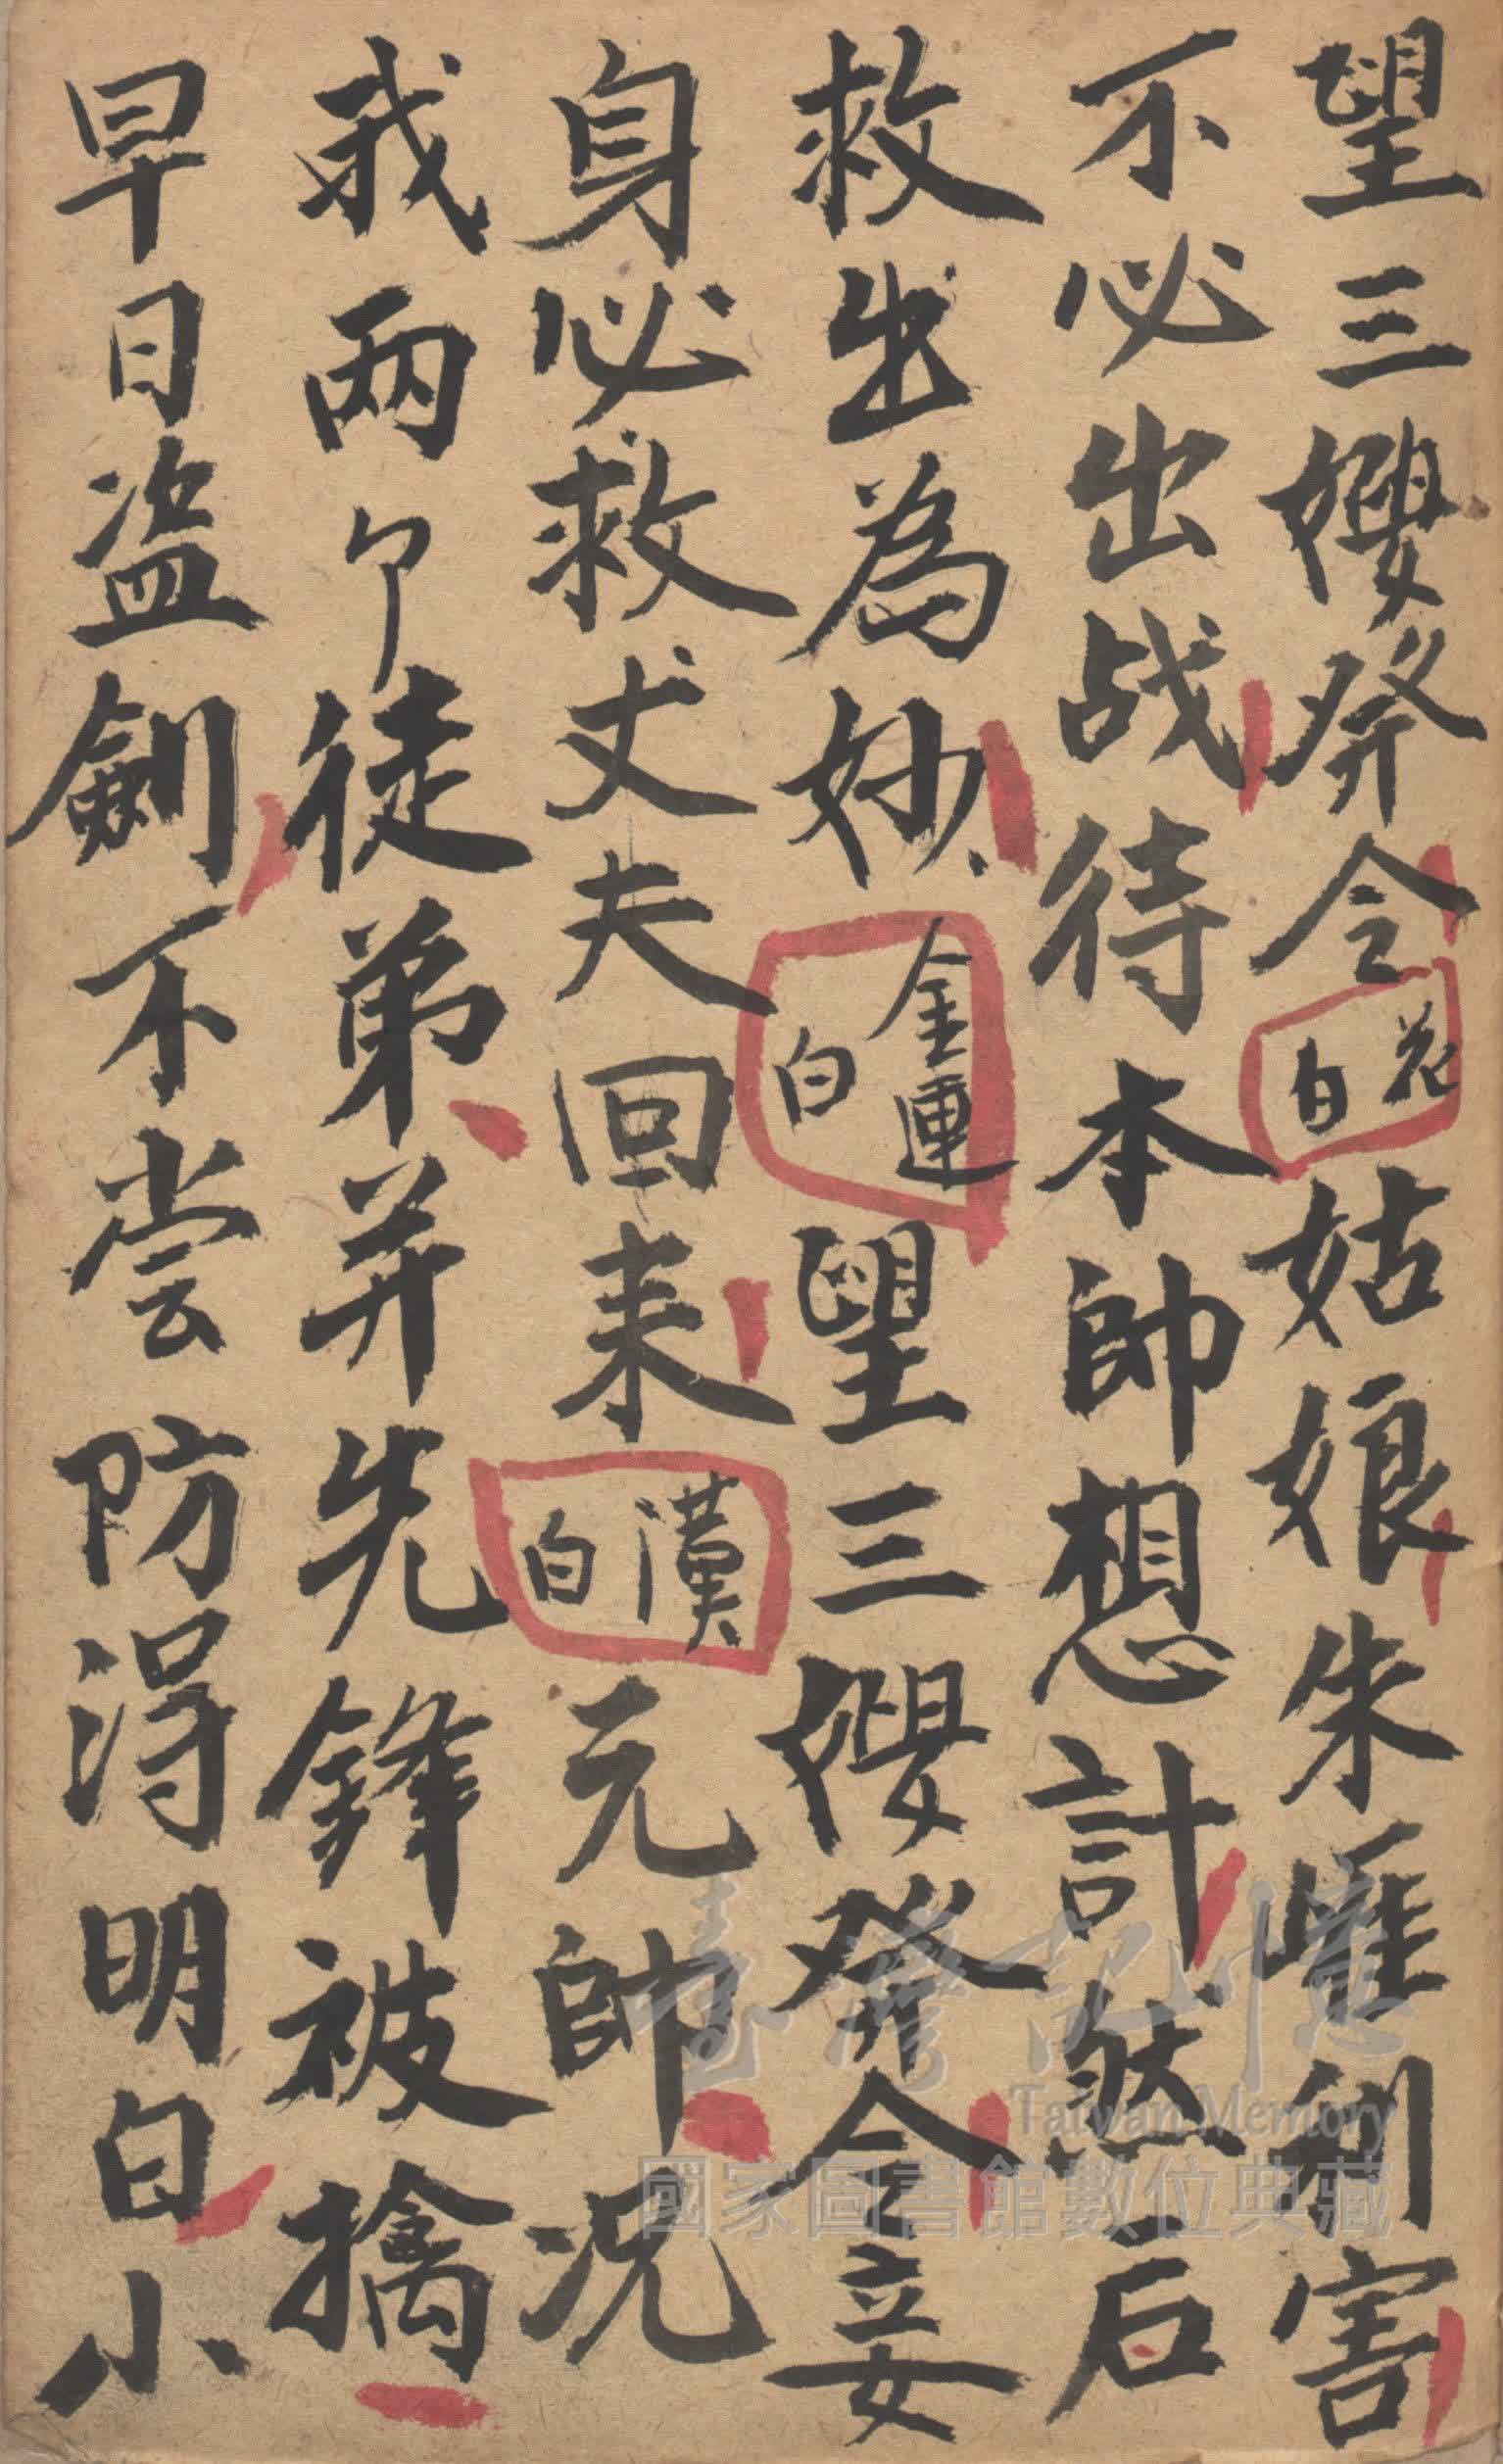 望三嫂发令花白姑娘朱崖利害
不必出战待本帥想計然后
救出為妙金連白望三嫂发令妾
身必救丈夫回来漢白元帥况
我兩卩徒弟并先鋒被擒
早日盗劍不尝防得明白小
臺灣記憶
Taiwan Memory
國家圖書館數位典藏